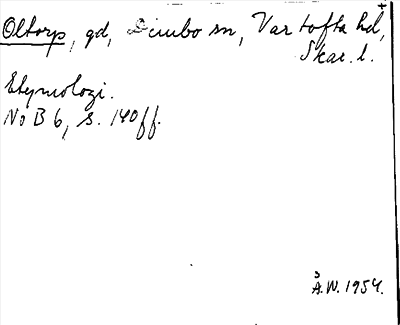 Oltorp, gd, Dimbo sn, Vartofta hd,
Skar. l.
Etymologi.
NoB 6, s. 140 ff.
Å.W. 1954.